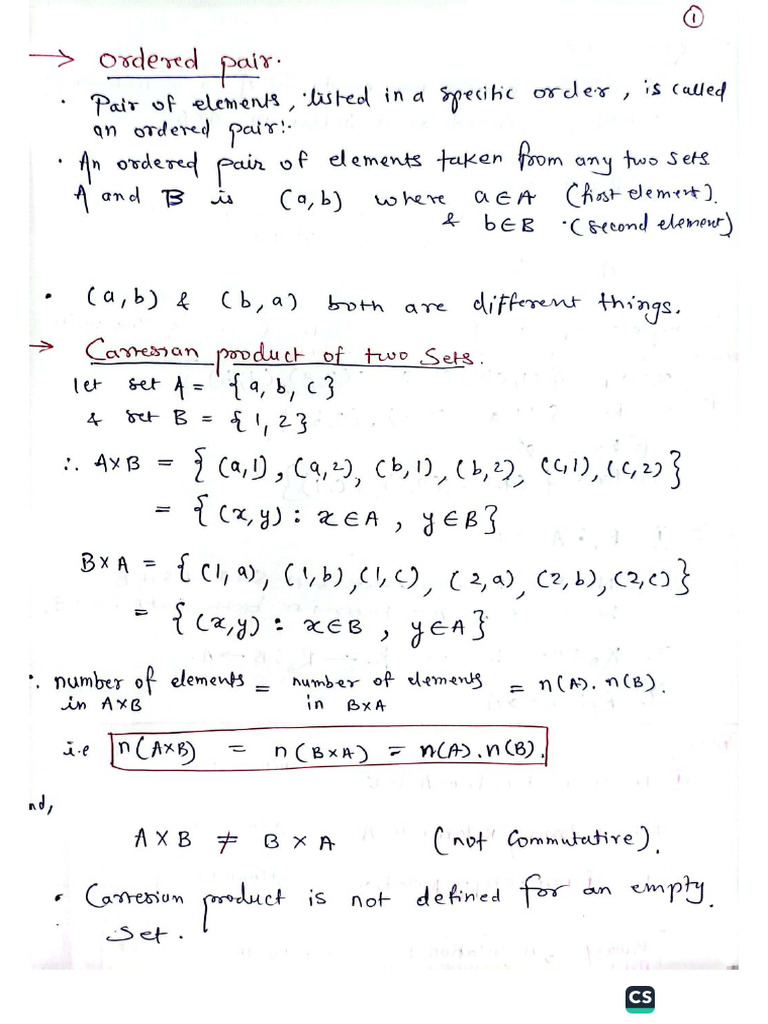 ①
→ Ordered pair.
· Pair of elements, listed in a specific order, is called
an ordered pair!.
· An ordered pair of elements taken from any two sets
A and B is (a,b) where a∈A (first element).
& b∈B (second element)
· (a,b) & (b,a) both are different things.
→ Cartesian product of two sets.
let set A = {a, b, c}
& set B = {1, 2}
∴ A×B = { (a,1), (a,2), (b,1), (b,2), (c,1), (c,2) }
= { (x,y) : x∈A , y∈B }
B×A = { (1,a), (1,b), (1,c), (2,a), (2,b), (2,c) }
= { (x,y) : x∈B , y∈A }
∴ number of elements in A×B = number of elements in B×A = n(A). n(B).
i.e n(A×B) = n(B×A) = n(A).n(B).
nd,
A × B ≠ B × A (not Commutative).
· Cartesian product is not defined for an empty
set.
CS